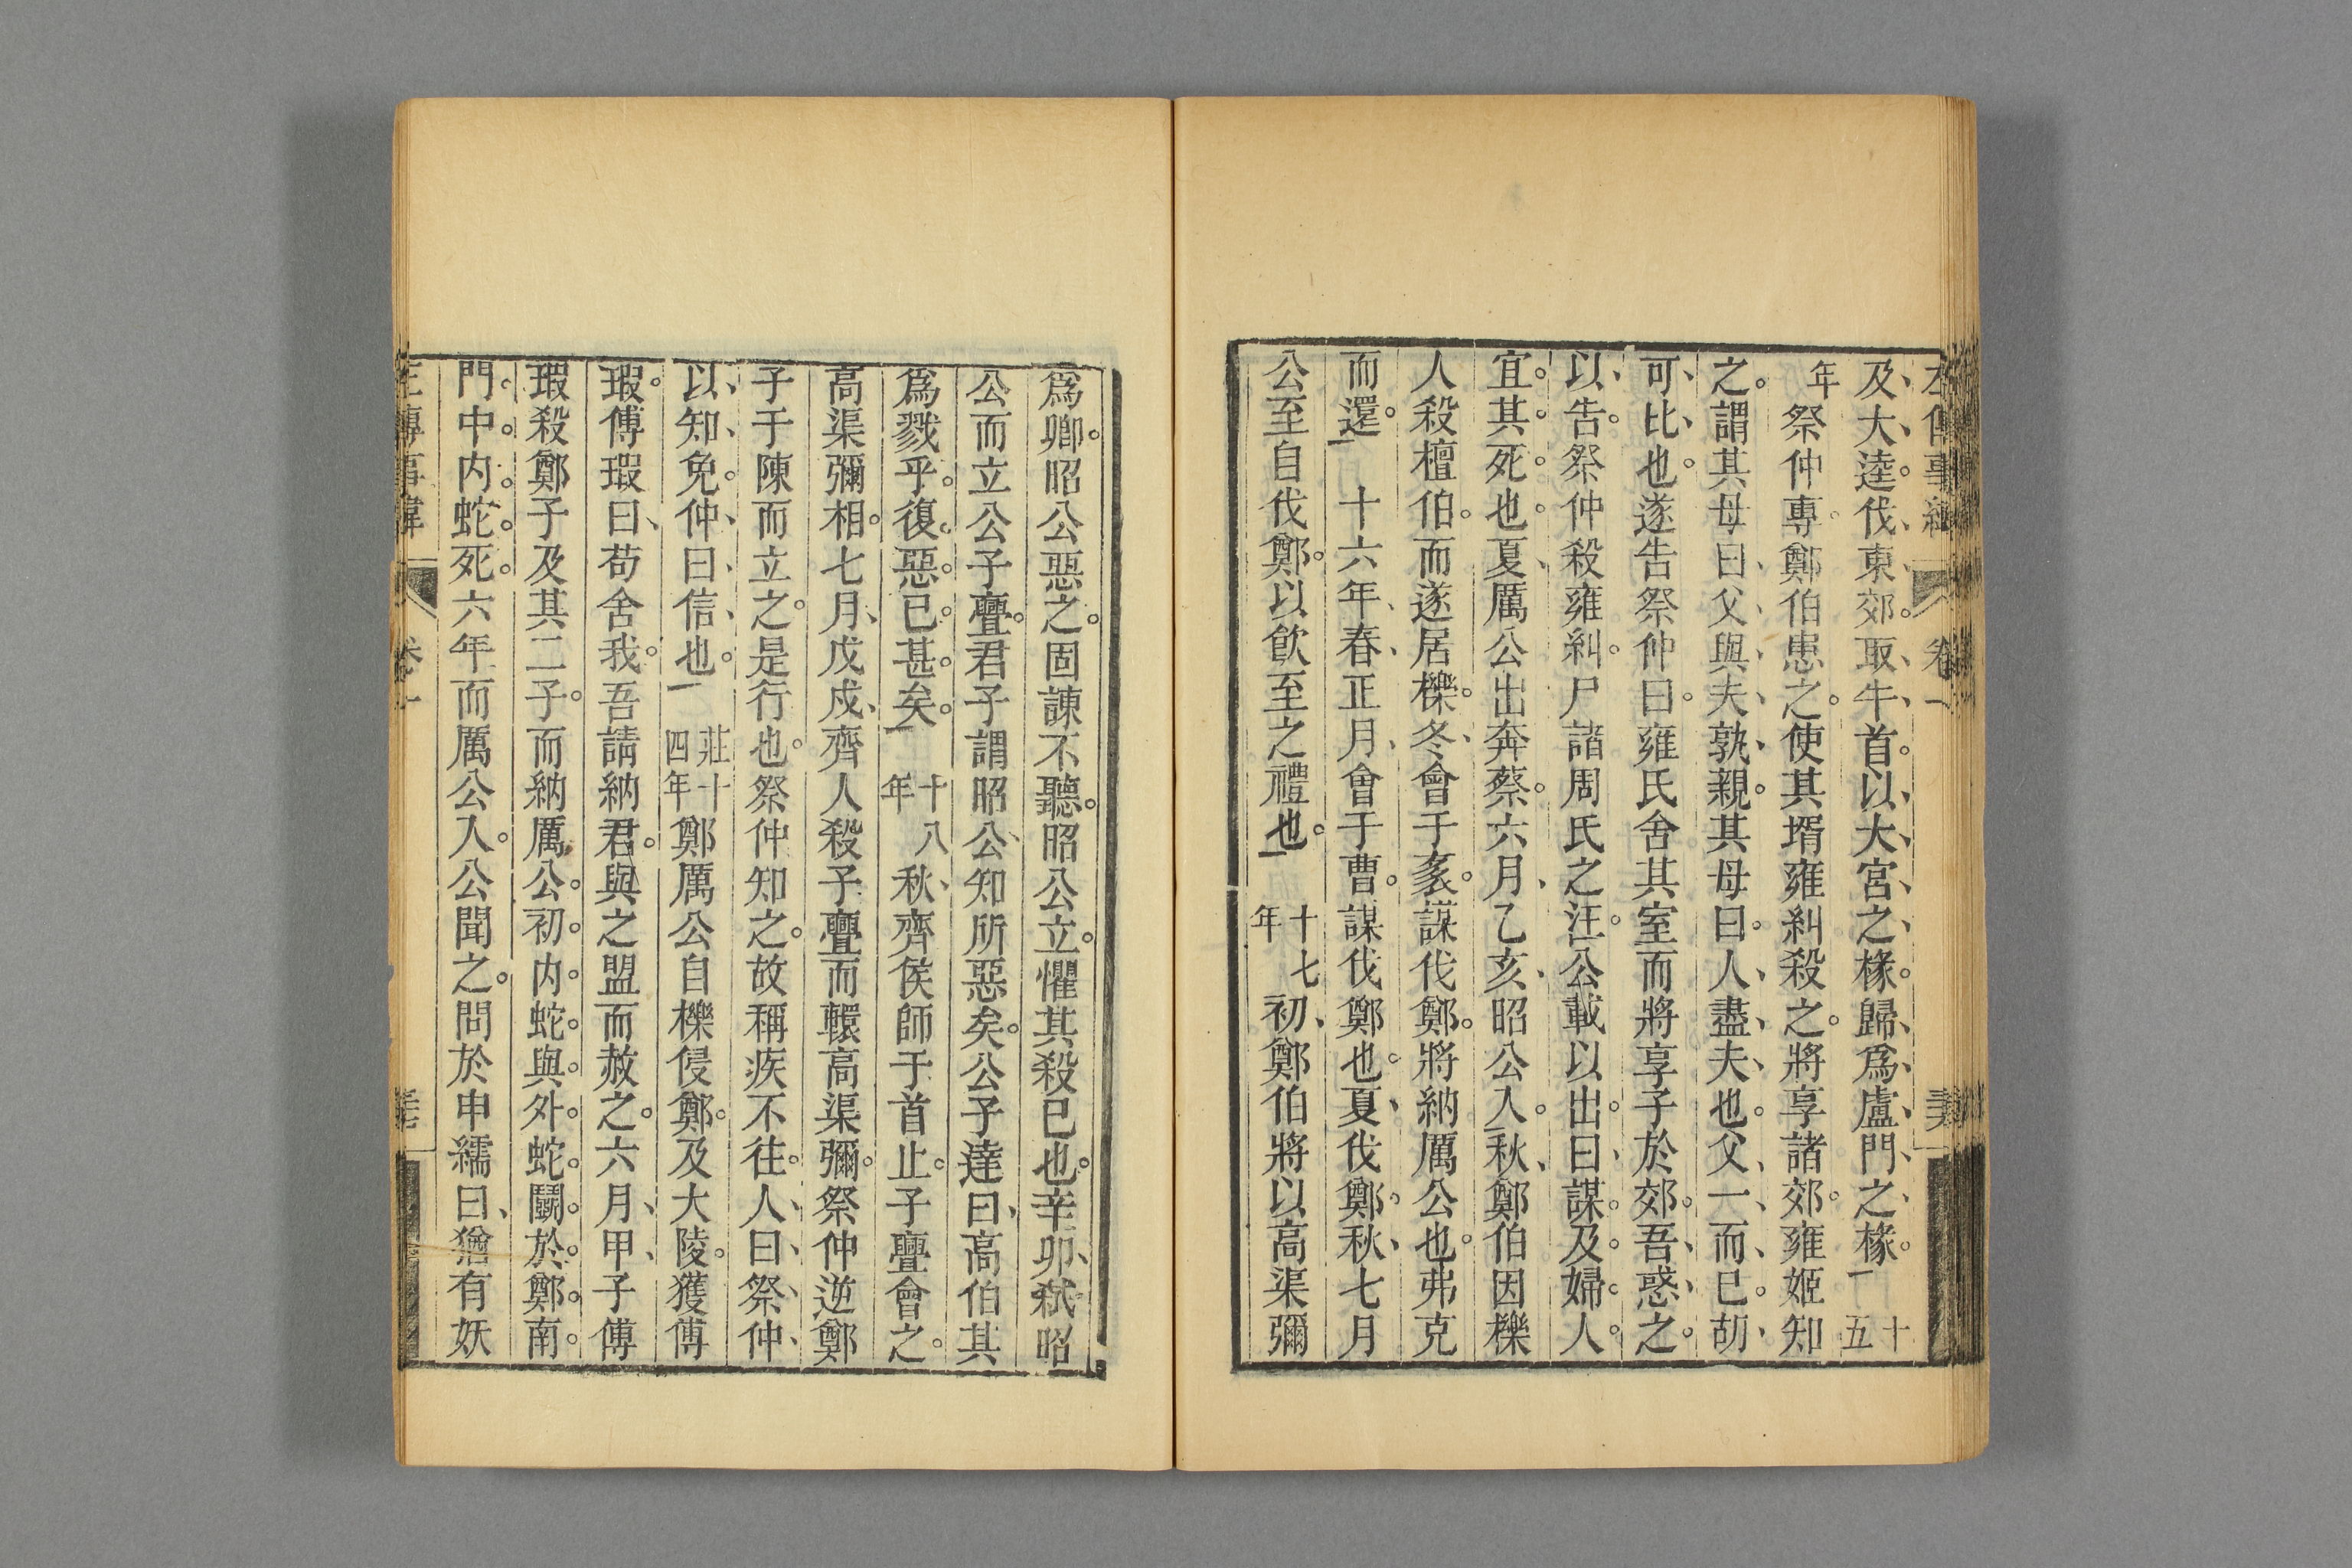 及、大、逵。伐、東、郊。取、牛、首。以、大、宮、之、椽。歸、爲、盧、門、之、椽。十五
年祭仲專。鄭伯患之。使其壻雍糾殺之。將享諸郊。雍姬知
之。謂其母曰、父、與、夫、孰、親。其母曰。人、盡、夫、也。父、一、而、已。胡、
可、比、也。遂告祭仲曰。雍氏舍其室而將享子於郊。吾、惑、之。
以、告。祭仲殺雍糾。尸諸周氏之汪。公載以出。曰、謀。及。婦。人。
宜。其。死。也。夏、厲公出奔蔡。六月、乙亥、昭公入。秋、鄭伯因櫟
人殺檀伯。而遂居櫟。冬、會于袲。謀伐鄭。將納厲公也。弗克
而還。十六年、春、正月、會于曹。謀伐鄭也。夏、伐鄭、秋、七月
公至自伐鄭。以飲至之禮也。十七年初、鄭伯將以高渠彌
爲卿。昭公惡之。固諫不聽。昭公立。懼其殺已也。辛卯、弒昭
公而立公子亹。君子謂昭公、知所惡矣。公子達曰、高伯其
爲戮乎。復。惡。已。甚。矣。十八年秋、齊侯師于首止。子亹會之。
高渠彌相。七月、戊戌、齊人殺子亹而轘高渠彌。祭仲逆鄭
子于陳而立之。是行也。祭仲知之。故稱疾不往。人、曰、祭、仲、
以、知、免。仲、曰、信、也。莊十四年鄭厲公自櫟侵鄭。及大陵。獲傅
瑕。傅瑕曰、苟舍我。吾請納君。與之盟而赦之。六月、甲、子傅
瑕殺鄭子及其二子。而納厲公。初。内。蛇。與。外。蛇。鬭。於。鄭。南。
門。中。内。蛇。死。六年而厲公入。公聞之。問於申繻曰、猶有妖